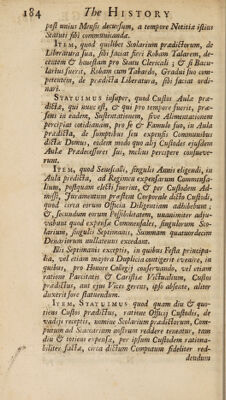 184 The HISTORY
post unius Mensis decursum, a tempore Notitiæ istius
Statuti sibi communicandæ.
ITEM, quod quilibet Scolarium prædictorum, de
Liberatura sua, sibi faciat fieri Robam Talarem, de-
centem & honestam pro Statu Clericali ; & si Bacu-
larius fuerit, Robam cum Tabardo, Gradui suo com-
petentem, de prædicta Liberatura, sibi faciat ordi-
nari.
STATUIMUS insuper, quod Custos Aulæ præ-
dictæ, qui nunc est, & qui pro tempore fuerit, præ-
sens in eadem, Sustentationem, sive Alimentationem
percipiat cotidianam, pro se & Famulo suo, in Aula
prædicta, de sumptibus seu expensis Communibus
dictæ Domus, eodem modo quo alii Custodes ejusdem
Aulæ Prædecessores sui, melius percipere consueve-
runt.
ITEM, quod Senescalli, singulis Annis eligendi, in
Aula prædicta, ad Regimen expensarum Communa-
lium, postquam electi fuerint, & per Custodem Ad-
moniti, Juramentum præstent Corporale dicto Custodi,
quod circa eorum Officia Diligentiam adhibebunt ;
&, secundum eorum Possibilitatem, unanimiter adju-
vabunt quod expensæ Commensales, singulorum Sco-
larium, singulis Septimanis, Summam quatuordecim
Denariorum nullatenus excedant.
His Septimanis exceptis, in quibus Festa principa-
lia, vel etiam majora Duplicia contigerit evenire, in
quibus, pro Honore Collegij conservando, vel etiam
ratione Paucitatis & Caristiæ Victualium, Custos
prædictus, aut ejus Vices gerens, ipso absente, aliter
duxerit fore statuendum.
ITEM, STATUIMUS quod quam diu & quo-
tiens Custos prædictus, ratione Officij Custodis, de
vadiis receptis, nomine Scolarium prædictorum, Com-
putum ad Scaccarium nostrum reddere teneatur, tam
diu & totiens expensæ, per ipsum Custodem rationa-
biliter factæ, circa dictum Computum fideliter red-
dendum